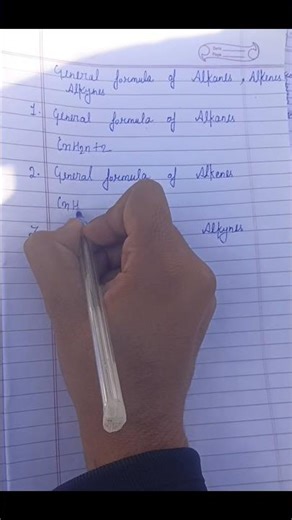 General formula of Alkanes, Alkenes
Alkynes
1. General formula of Alkanes
CnH2n+2
2. General formula of Alkenes
CnH
3. Alkynes